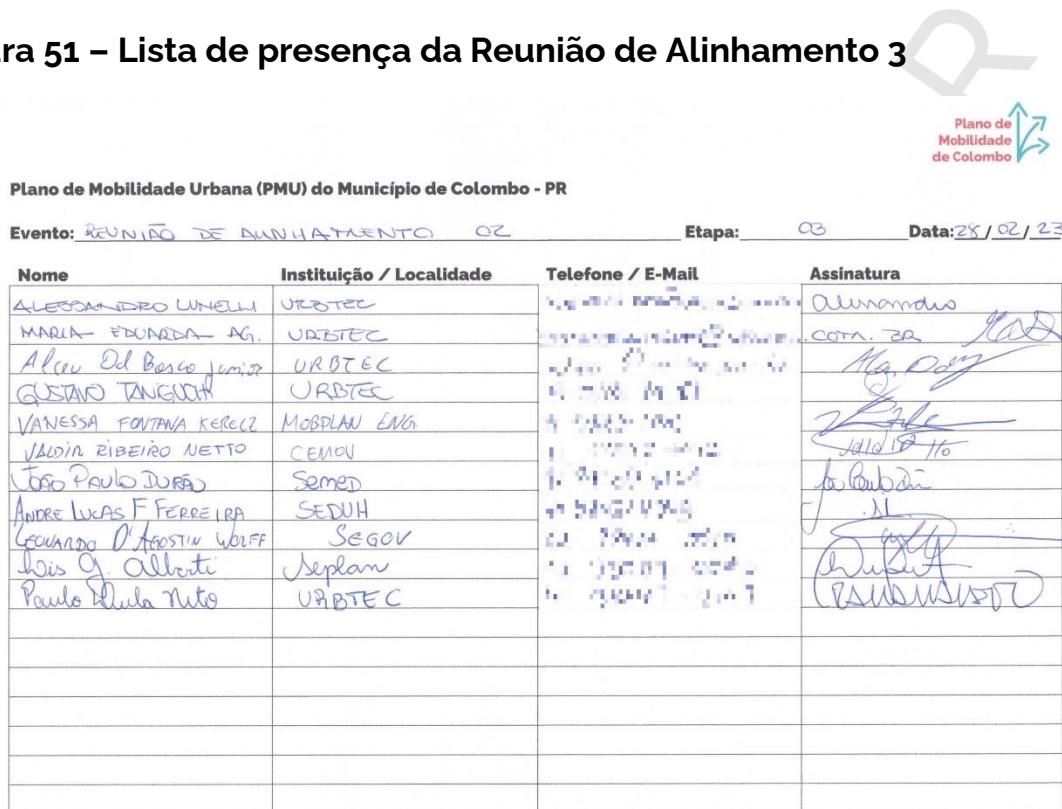 ra 51 – Lista de presença da Reunião de Alinhamento 3
Plano de
Mobilidade
de Colombo
Plano de Mobilidade Urbana (PMU) do Município de Colombo - PR
Evento: REUNIÃO DE ALINHAMENTO 02 Etapa: 03 Data: 28/02/23
Nome Instituição / Localidade Telefone / E-Mail Assinatura
ALESSANDRO LUNELLI URBTEC
MARIA EDUARDA AG. URBTEC .COM.BR
Alceu Dal Bosco Junior URBTEC
GUSTAVO TANIGUCHI URBTEC
VANESSA FONTANA KERECZ MOBPLAN ENG.
VALDIR RIBEIRO NETTO
JOÃO PAULO DURÃO Semed
ANDRE LUCAS F FERREIRA SEDUH
LEONARDO D'AGOSTIN WOLFF SEGOV
G. Alberti Seplan
Paulo Neto URBTEC